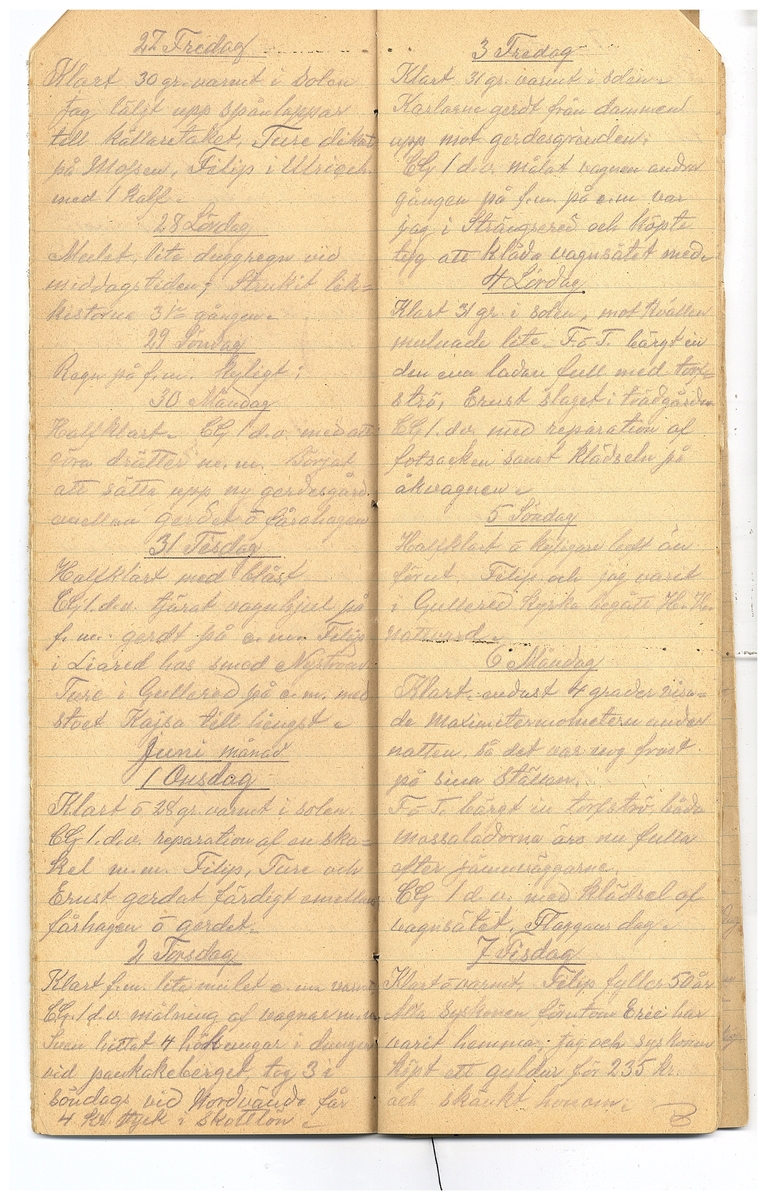 27 Fredag
Klart 30 gr. varmt i solen
jag lälgt upp spånlappar
till källaretaket, Ture dikat
på Mossen, Filip i Ulriceh.
med 1 kalf.
28 Lördag
Mulet, lite duggregn vid
middagstiden; Strukit lik=
kistorna 3je gången.
29 Söndag
Regn på f.m. kyligt;
30 Måndag
Halfklart. CG 1 d.v. med att
göra drätter m.m. Börjat
att sätta upp ny gerdesgård.
emellan gerdet o fårahagen
31 Tisdag
Halfklart med blåst
CG 1 d.v. tjärat vagnhjul på
f.m. gerdt på e.m. Filip
i Liared hos smed
Ture i Gullered på e.m. med
stoet Kajsa till hingst.
Juni månad
1 Onsdag
Klart o 28 gr. varmt i solen.
CG 1 d.v. reparation af en ska=
kel m.m. Filip, Ture och
Ernst gerdat färdigt emellan
fårhagen o gerdet.
2 Torsdag
Klart f.m. lite mulet e.m. varmt
CG 1 d.v. målning af vagnar m.m.
Sven hittat 4 hökungar i dungen
vid pankakeberget, tog 3 i
söndags vid Nordvände får
4 kr. styck i skottlön.
3 Fredag
Klart 31 gr. varmt i solen.
Karlarne gerdt från dammen
upp mot gerdesgrinden.
CG 1 d.v. målat vagnen andra
gången på f.m. på e.m var
jag i Strängsered och köpte
tyg att kläda vagnsätet med.
4 Lördag
Klart 31 gr. i solen, mot kvällen
mulnade lite. F o T. bärgt in
den ena ladan full med torf=
strö, Ernst slaget i trädgården
CG 1. d.v. med reparation af
fotsacken samt klädseln på
åkvagnen.
5 Söndag
Halfklart o kyligare luft än
förut. Filip och jag varit
i Gullered kyrka begått H. H.
nattvard.
6 Måndag
Klart. endast 4 grader visa=
de maximitermometern under
natten, så det var nog frost
på sina ställen.
F o T. bärgt in torfströ, båda
mossaladorna äro nu fulla
efter jämnväggarne.
CG 1 d.v. med klädsel af
vagnsätet. Flaggans dag.
7 Tisdag
Klart o varmt, Filip fyller 50 år
Alla syskonen förutom Eric har
varit hemma; jag och syskonen
köpt ett guldur för 235 kr.
och skänkt honom;